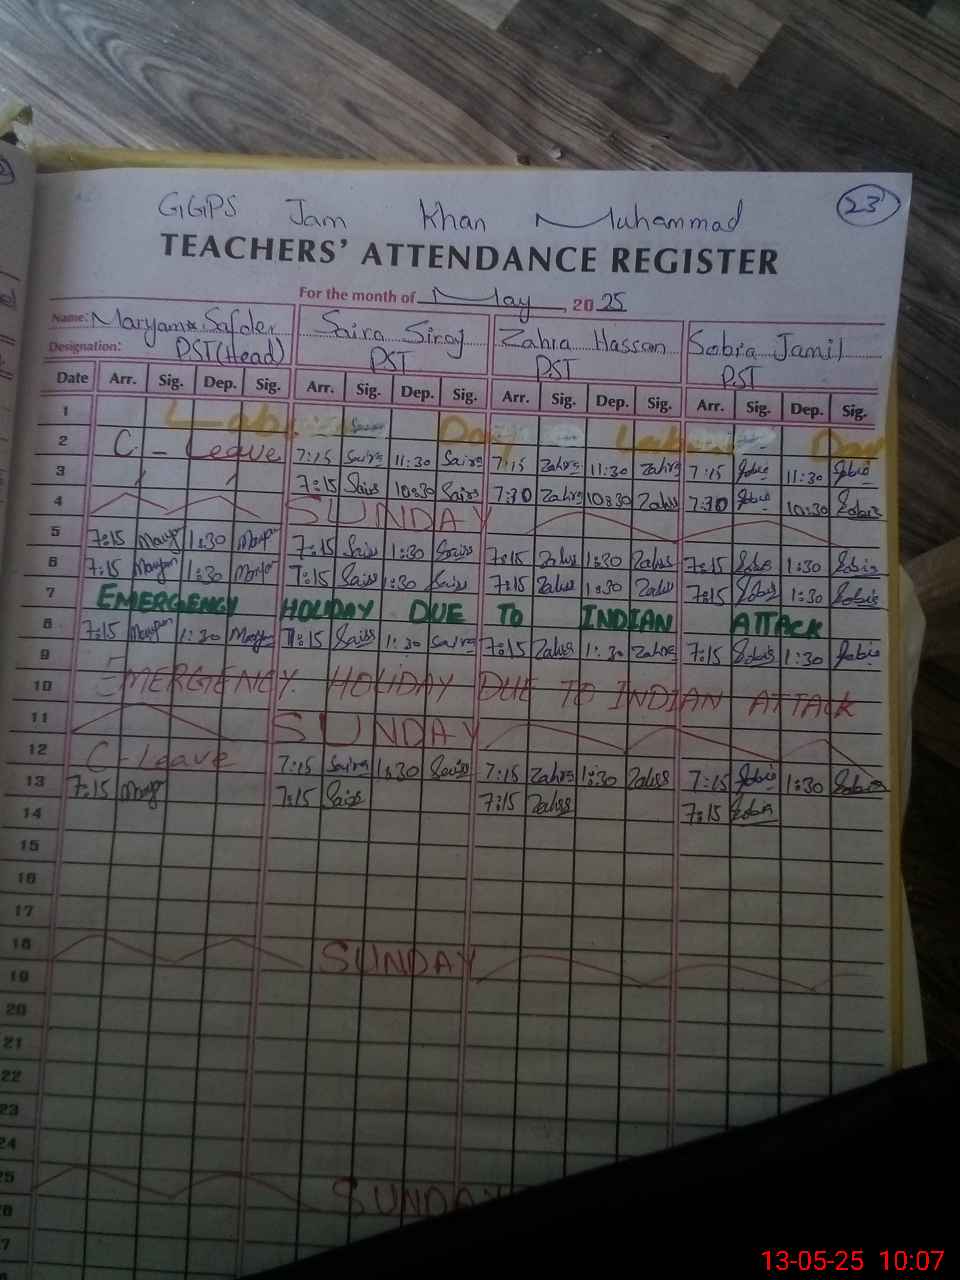 23
GGPS Jam Khan Muhammad
TEACHERS' ATTENDANCE REGISTER
For the month of May, 2025
Name: Maryam Safder Saira Siraj Zahra Hassan Sobia Jamil
Designation: PST(Head) PST PST PST
Date Arr. Sig. Dep. Sig. Arr. Sig. Dep. Sig. Arr. Sig. Dep. Sig. Arr. Sig. Dep. Sig.
1 Labour Day Labour Day
2 C - Leave 7:15 Saira 11:30 Saira 7:15 Zahra 11:30 Zahra 7:15 Sobia 11:30 Sobia
3 7:15 Saira 10:30 Saira 7:30 Zahra 10:30 Zahra 7:30 Sobia 10:30 Sobia
4 SUNDAY
5 7:15 Maryam 1:30 Maryam 7:15 Saira 1:30 Saira 7:15 Zahra 1:30 Zahra 7:15 Sobia 1:30 Sobia
6 7:15 Maryam 1:30 Maryam 7:15 Saira 1:30 Saira 7:15 Zahra 1:30 Zahra 7:15 Sobia 1:30 Sobia
7 EMERGENCY HOLIDAY DUE TO INDIAN ATTACK
8 7:15 Maryam 1:30 Maryam 7:15 Saira 1:30 Saira 7:15 Zahra 1:30 Zahra 7:15 Sobia 1:30 Sobia
9
10 EMERGENCY HOLIDAY DUE TO INDIAN ATTACK
11 SUNDAY
12 C-Leave 7:15 Saira 1:30 Saira 7:15 Zahra 1:30 Zahra 7:15 Sobia 1:30 Sobia
13 7:15 Maryam 7:15 Saira 7:15 Zahra 7:15 Sobia
14
15
16
17
18 SUNDAY
19
20
21
22
23
24
25 SUNDAY
26
27
13-05-25 10:07